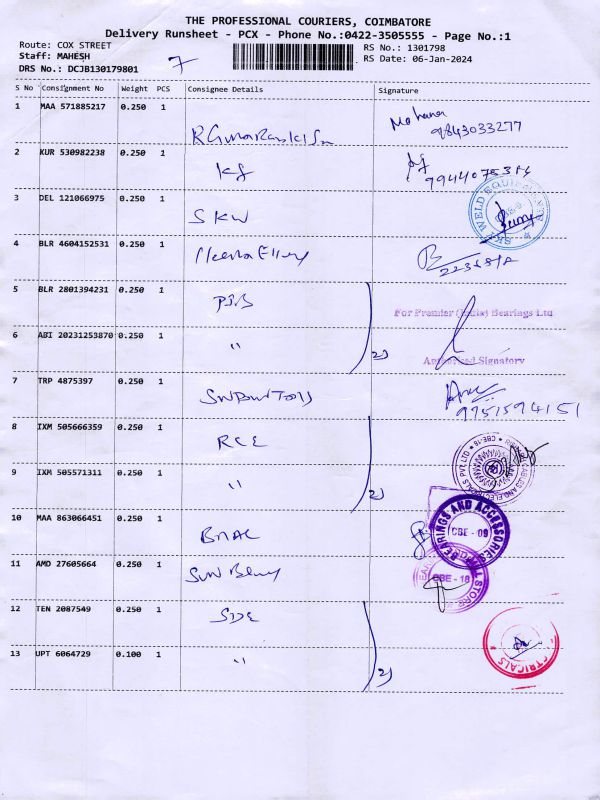 THE PROFESSIONAL COURIERS, COIMBATORE
Delivery Runsheet - PCX - Phone No.:0422-3505555 - Page No.:1
Route: COX STREET
RS No.: 1301798
Staff: MAHESH
RS Date: 06-Jan-2024
DRS No.: DCJB130179801
7
S No Consignment No Weight PCS Consignee Details Signature
1 MAA 571885217 0.250 1
Mohana
9843033277
2 KUR 530982238 0.250 1
3 DEL 121066975 0.250 1 SKW
SKF WELD EQUIPMENT
4 BLR 4604152531 0.250 1
5 BLR 2801394231 0.250 1 PIB
For Premier (India) Bearings Ltd
6 ABI 20231253870 0.250 1 " 2)
Authorised Signatory
7 TRP 4875397 0.250 1
9751594151
8 IXM 505666359 0.250 1 RCE
CABLES AND ELECTRICALS PVT. LTD * CBE-18
9 IXM 505571311 0.250 1 " 2)
10 MAA 863066451 0.250 1 BNAC
BEARINGS AND ACCESSORIES
CBE - 09
11 AMD 27605664 0.250 1 SUN
MILL STORE
CBE - 18
12 TEN 2087549 0.250 1 SDE
13 UPT 6064729 0.100 1 " 2)
ELECTRICALS